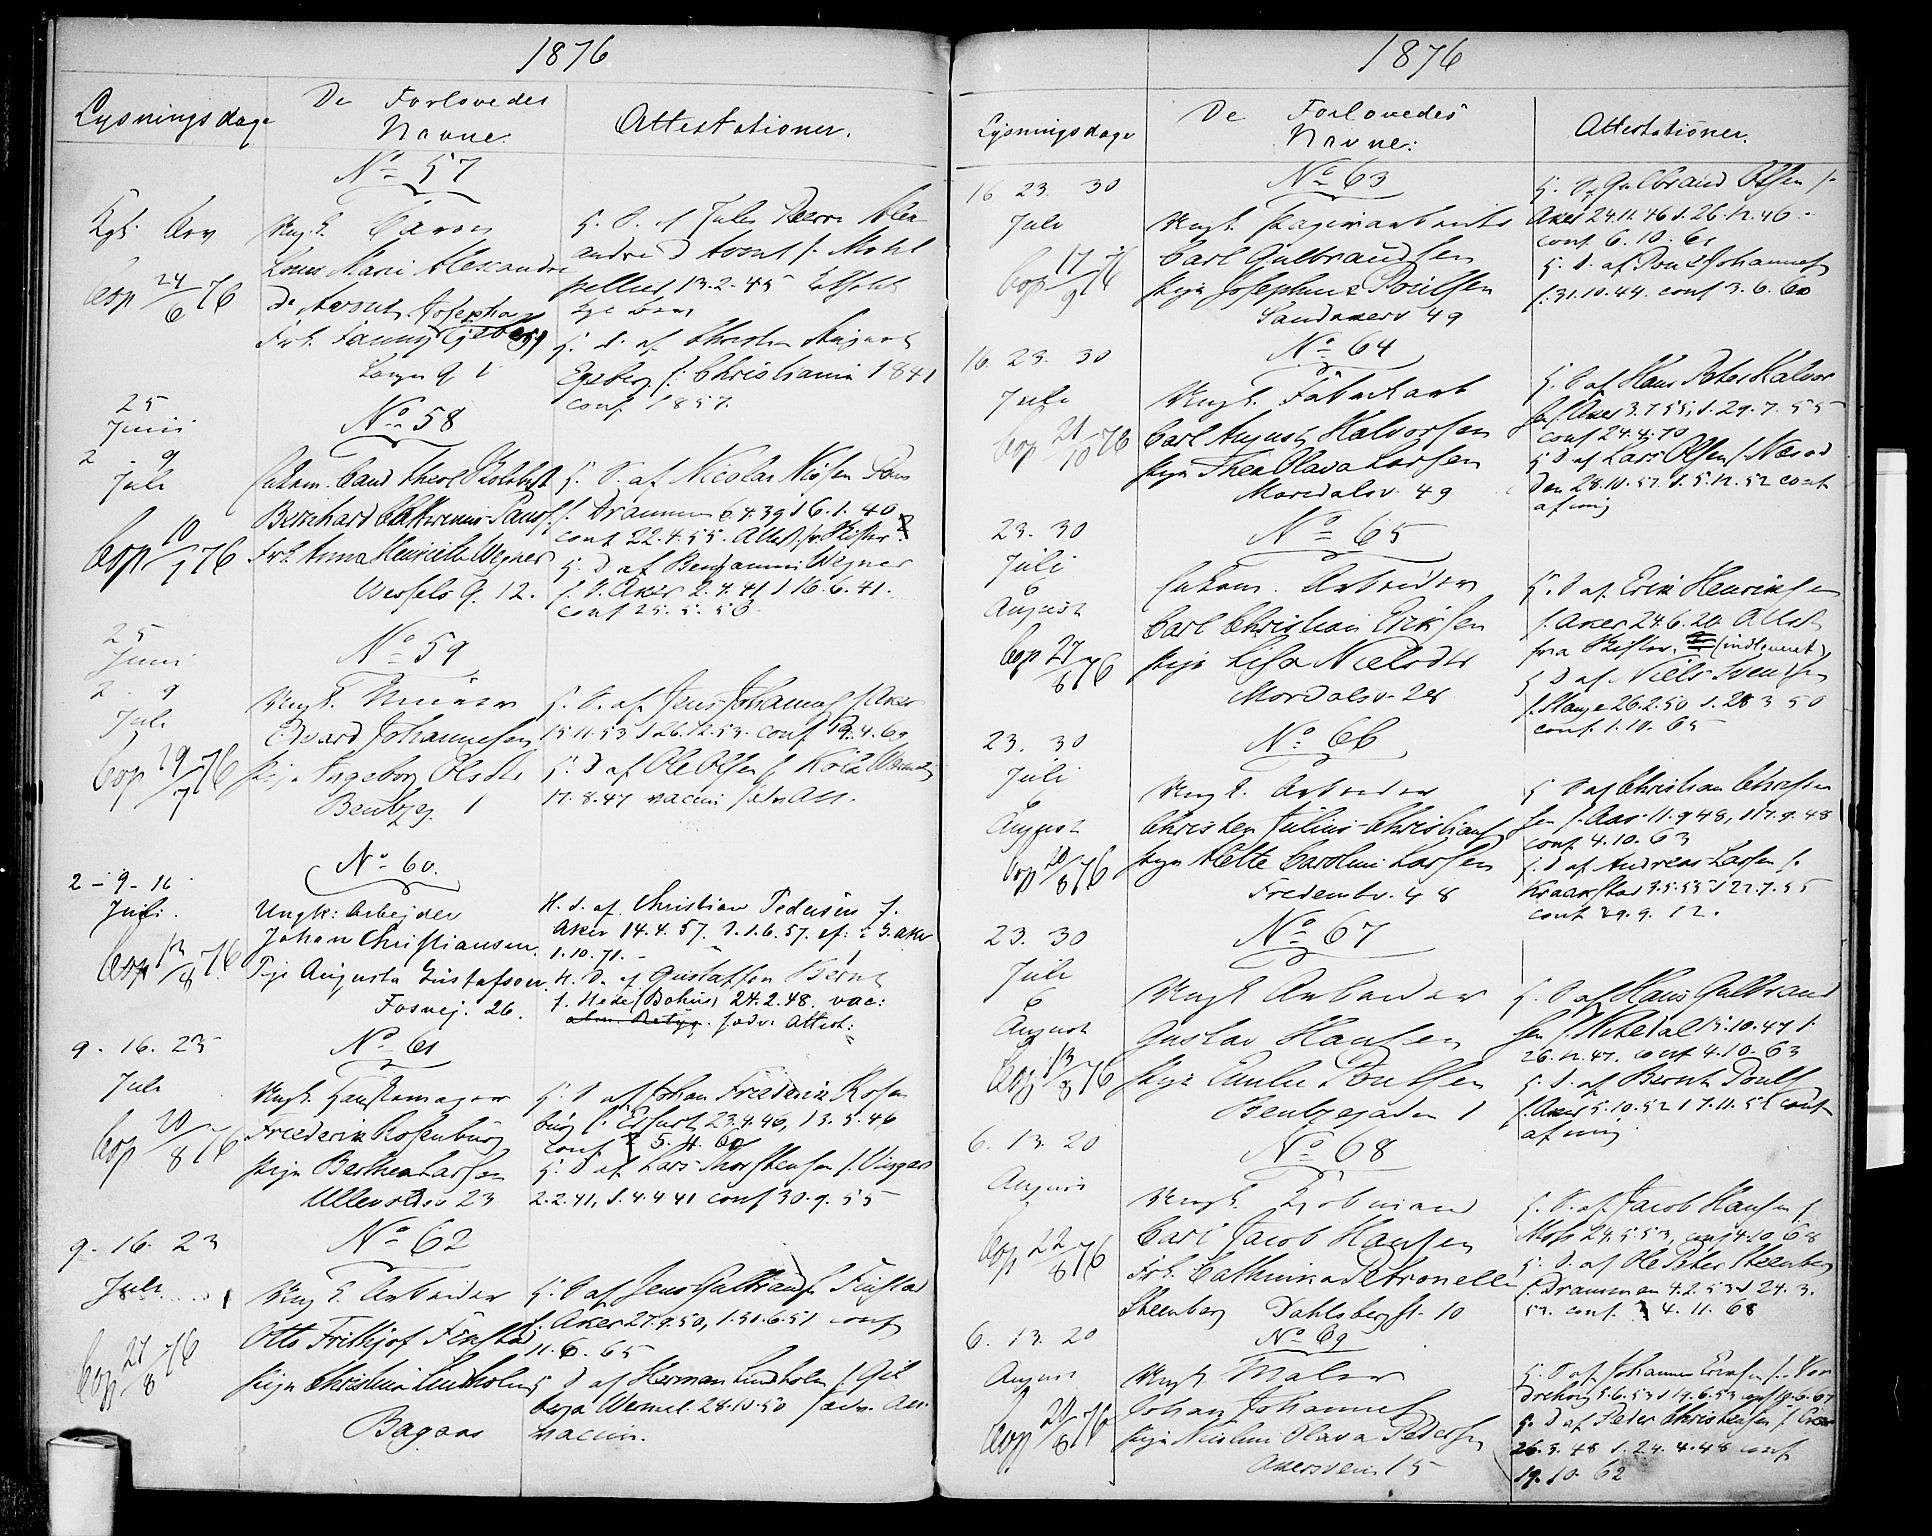 1876
Lysningsdage
De Forlovedes
Navne:
Attestationer.
No 57
Kgb. Brv
Ungk. Baron
Louis Marie Alexandre
Frk. Fanny Egeberg
H. S. af Jules Pierre Alex
andre
13.2.45
Cop 24/6 76
H. D. af
Egeberg f. Christiania 1841
conf 1857.
25
Juni
2 9
Juli
Cop 10/7 76
No 58
Cand. theol.
Bernhard Cathrinus Pauss
Frk. Anna Henriette Wegner
Wessels G. 12.
H. S. af Nicolai Nissen Paus
f. Drammen 6.4.39 d 6.1.40
conf 22.4.55. Attest fr. Skifter
H. D. af Benjamin Wegner
f. V. Aker 2.4.41 d 16.6.41.
conf 25.5.56.
25
Juni
2. 9
Juli
Cop 29/7 76
No 59
Ungk. Murer
Edvard Johannesen
Pige Ingeborg Olsdtr
Bentzeg. 1
H. S. af Jens Johannes f. Aker
15.11.53 d 26.12.53. conf
H. D. af Ole Olsen f.
17.8.47 vaccin sædv Att.
2 - 9 - 16
Juli.
Cop 12/8 76
No 60.
Ungk: Arbejder
Johan Christiansen.
Pige Augusta Gustafson.
Fosvej. 26.
H. S. af Christian Pedersen f.
Aker 14.4.57. d. 1.6.57. cf: i Ø. Aker
1.10.71. -
H. D. af Gustaffson Bernt
f. Hede (Bohus) 24.2.48. vac:
sædv: Attest:
9. 16. 23
Juli
Cop 20/8 76
No 61
Ungk. Hanskemager
Frederik Rosenburg
Pige Berthea Larsen
Ullevoldsv 23
H. S. af Johan Frederik Rosen
burg f. Erfurt 23.4.46, 13.5.46
conf
H. D. af Lars Thorstensen f. Vinger
2.2.41, d. 4.4 41 conf 30.9.55
9. 16. 23
Juli
Cop 27/8 76
No 62
Ungk. Arbeider
Otto Frithjof Finstad
Pige Christina Lindholm
Bagaas
H. S. af Jens Gulbrands. Finstad
f. Aker 27.9.50, d. 30.6.51 conf
11.6.65
H. D. af Herman Lindholm f.
28.10.50 sædv. Att.
vaccin.
1876
Lysningsdage
De Forlovedes
Navne:
Attestationer.
16 23. 30
Juli
Cop 17/9 76
No 63
Ungk. Papirarbeider
Carl Gulbrandsen
Pige Josephine Poulsen
Sandakerv 49
H. S. af Gulbrand Olsen f.
Aker 24.11.46 d. 26.12.46.-
conf. 6.10.61
H. D. af Poul Johannes
f. 31.10.44. conf 3.6.60
16 23. 30
Juli
Cop 21/10 76
No 64
Ungk. Fabrikarb
Carl August Halvorsen
Pige Thea Olava Larsen
Maridalsv. 49
H. S. af Hans Peter Halvor
sen f. Aker 3.7 55, d. 29.7.55
conf 24.4.70
H. D. af Lars Olsen f. Næsod
den 28.10.52. d. 5.12.52 conf
af mig
23. 30
Juli
6
August
Cop 27/8 76
No 65
Arbeider
Carl Christian Eriksen
Pige Lisa Nielsdtr
Maridalsv. 28
H. S. af Erik Henriksen
f. Aker 24.6.20. Attest
fra Skifter. (indleveret)
H. D. af Niels Svendsen
f. Stange 26.2.50 d. 28 3 50
conf. 1.10.65
23. 30
Juli
6
August
Cop 20/8 76
No 66
Ungk. Arbeider
Christen Julius Christians
Pige Mette Caroline Larsen
Fredensbv. 48
H. S. af Christian Christen
sen f. Aas 11.9 48, d 17.9.48
conf. 4.10.63
H. D. af Andreas Larsen f.
Kraakstad 3.5.55 d 22.7.55
conf 29.9.12.
23. 30
Juli
6
August
Cop 13/8 76
No 67
Ungk Arbeider
Gustav Hansen
Pige Emilie Poulsen
Bentzegaden 1
H. S. af Hans Gulbrand
sen f. Nitedal 15.10.47 d.
26.12.47. conf 4.10.63
H. D. af Bernt Pouls
f. Aker 5.10.52 d 7.11.52 conf
af mig
6. 13. 20
August
Cop 22/8 76
No 68
Ungk. Kjøbmand
Carl Jacob Hansen
Frk. Cathinka Petronelle
Steenberg Dahlsbergst. 10
H. S. af Jacob Hansen f.
Moss 24.5.53, conf 4.10 68
H. D. af Ole Peter Steenberg
f. Drammen 4.2.53 d 24.3.
53. conf. 4.11.68
6. 13. 20
August
Cop 20/8 76
No 69
Ungk Maler
Johan Johannes
Pige Nicoline Olava Pedersen
Akersvein 15
H. S. af Johannes Eriksen f.
5.6.53 d 19.6.53 conf
H. D. af Peder Christensen f.
26.3.48 d. 24.4.48 conf
19.10.62